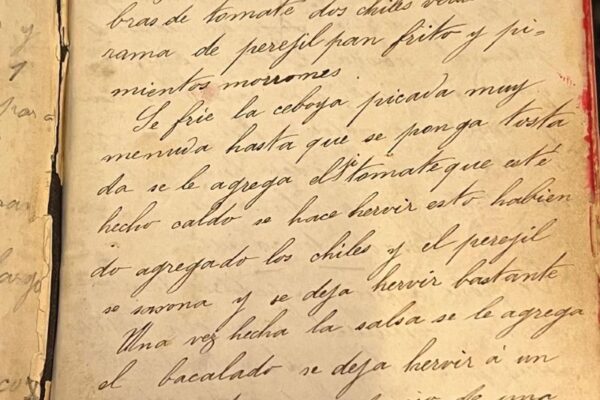 y
1
par-
largo
bras de tomate dos chiles
rama de perejil pan frito y pi-
mientos morrones.
Se frie la ceboya picada muy
menuda hasta que se ponga tosta
da se le agrega el jitomate que esté
hecho caldo se hace hervir esto habien
do agregado los chiles y el perejil
se sasona y se deja hervir bastante
Una vez hecha la salsa se le agrega
el bacalado se deja hervir á un
de una